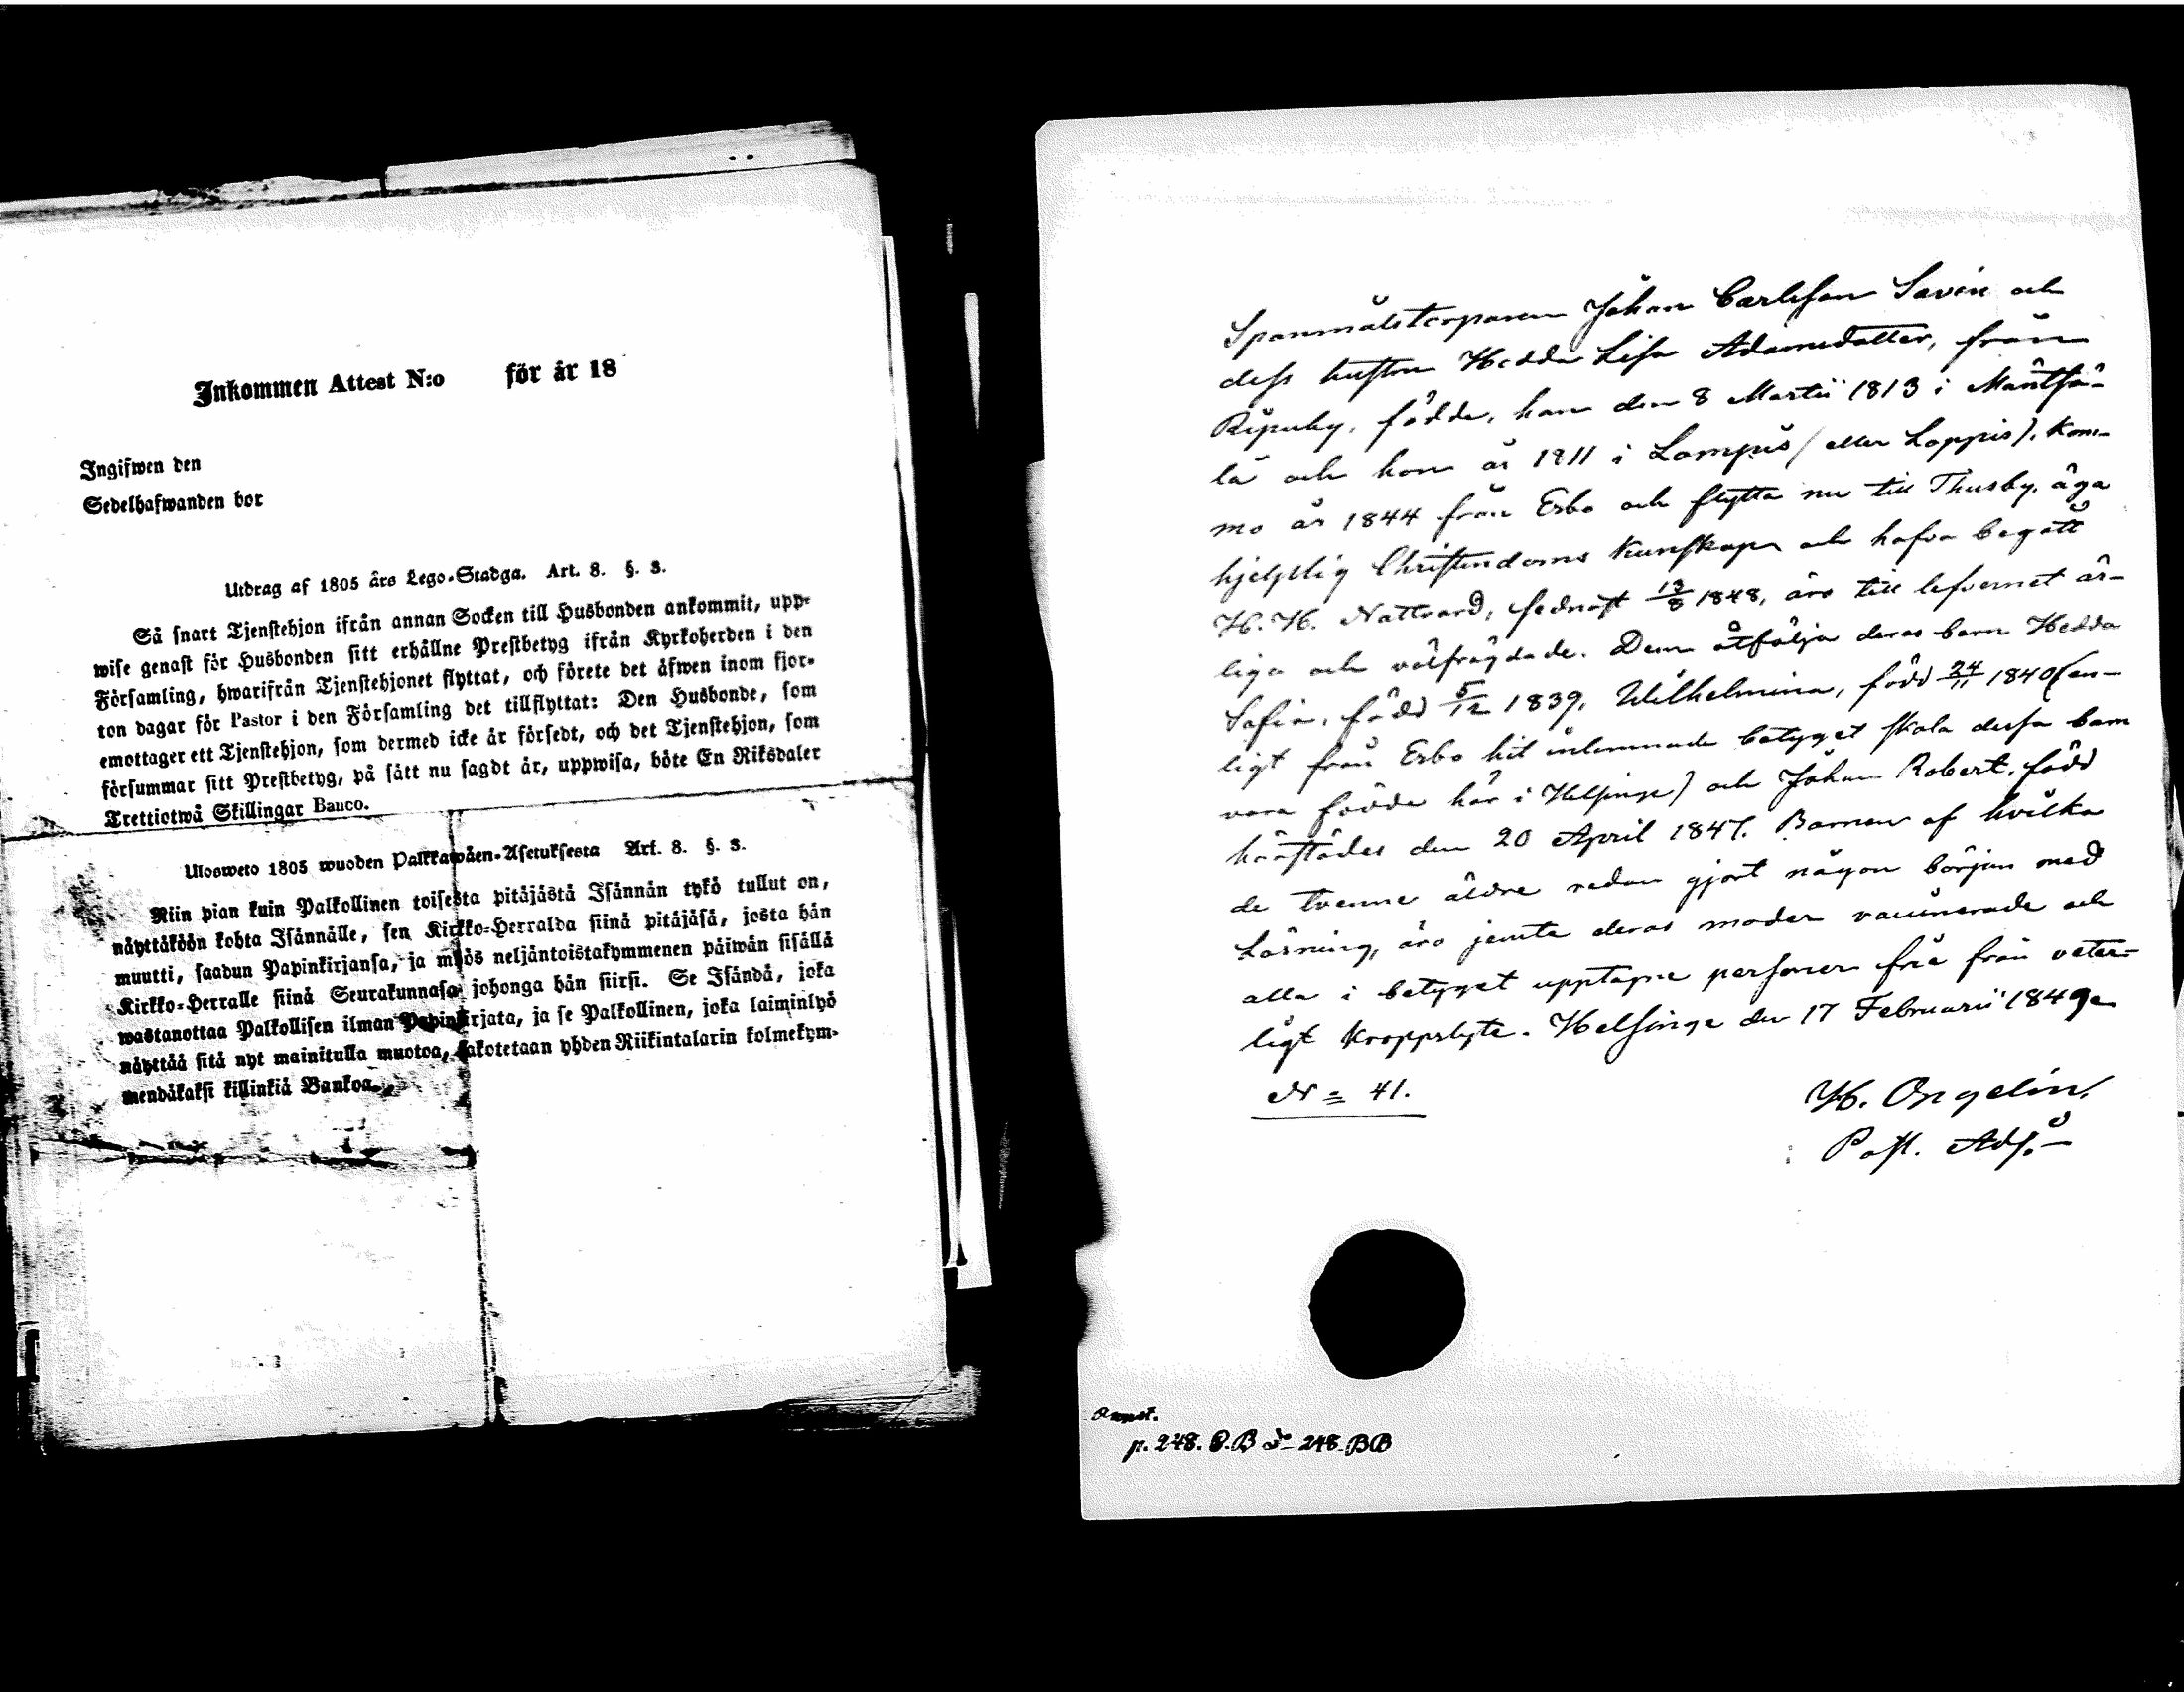 Inkommen Attest N:o för år 18
Ingifwen den
Sedelhafwanden bor
Utdrag af 1805 års Lego-Stadga. Art. 8. §. 3.
Så snart Tjenstehjon ifrån annan Socken till Husbonden ankommit, upp-
wise genast för Husbonden sitt erhållne Prestbetyg ifrån Kyrkoherden i den
Församling, hwarifrån Tjenstehjonet flyttat, och förete det äfwen inom fjor-
ton dagar för Pastor i den Församling det tillflyttat: Den Husbonde, som
emottager ett Tjenstehjon, som dermed icke är försedt, och det Tjenstehjon, som
försummar sitt Prestbetyg, på sätt nu sagdt är, uppwisa, böte En Riksdaler
Trettiotwå Skillingar Banco.
Ulosweto 1805 wuoden Palkkawäen-Asetuksesta Art. 8. §. 3.
Niin pian kuin Palkollinen toisesta pitäjästä Isännän tykö tullut on,
näyttäköön kohta Isännälle, sen Kirkko-Herralda siinä pitäjäsä, josta hän
muutti, saadun Papinkirjansa, ja myös neljäntoistakymmenen päiwän sisällä
Kirkko-Herralle siinä Seurakunnasa johonga hän siirsi. Se Isändä, joka
wastanottaa Palkollisen ilman Papinkirjata, ja se Palkollinen, joka laiminlyö
näyttää sitä nyt mainitulla muotoa, sakotetaan yhden Riikintalarin kolmekym-
mendäkaksi killinkiä Bankoa.
Spanmålstorparen Johan Carlsson Savén och
dess hustru Hedda Lisa Adamsdotter, från
födde, han den 8 Martii 1813 i Mäntsä-
lä och hon år 1811 i Lampis (eller Loppis), kom-
mo år 1844 från Esbo och flytta nu till Thusby, äga
hjelplig Christendoms kunskap och hafva begått
H. H. Nattvard, sednast 13/8 1848, äro till lefvernet är-
liga och välfrägdade. Dem åtfölja deras barn Hedda
Sofia, född 5/12 1839, Wilhelmina, född 24/11 1840 (en-
ligt från Esbo hit inlemnade betyget skola dessa barn
vara födde här i Helsinge) och Johan Robert, född
härstädes den 20 April 1847. Barnen af hvilka
de tvenne äldre redan gjort någon början med
Läsning, äro jemte deras moder vaccinerade och
alla i betyget upptagne personer fria från veter-
ligt kroppslyte. Helsinge den 17 Februarii 1849
N = 41.
H.
Past. Adj.
p. 248. 248 BB